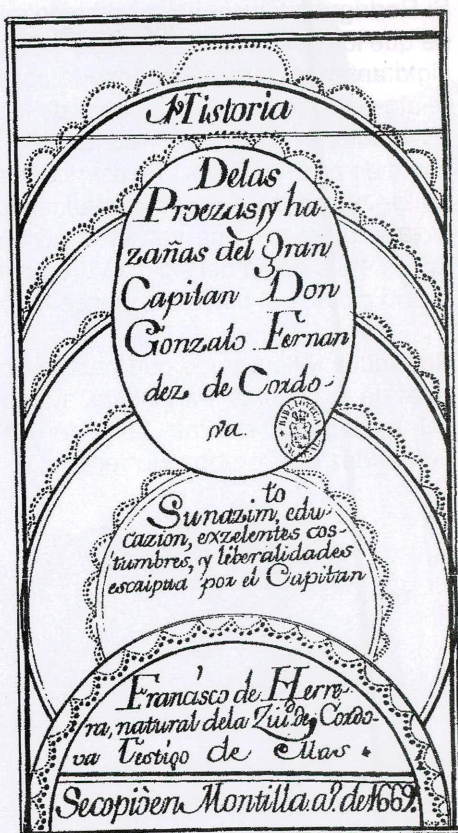 Historia
Delas
Proezas y ha-
zañas del gran
Capitan Don
Gonzalo Fernan
dez de Cordo-
va.
BIBLIOTECA
Sunazim.to edu
cazion, exzelentes cos-
tumbres, y liberalidades
escripta por el Capitan
Francisco de Herre-
ra, natural dela Ziu.d de Cordo-
va Testigo de ellas.
Secopió en Montilla a.º de 1669.